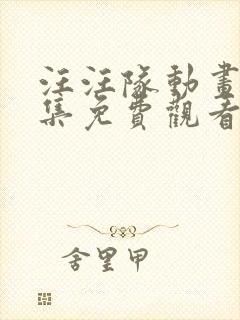 汪汪隊動畫
集免費觀看
舍里甲